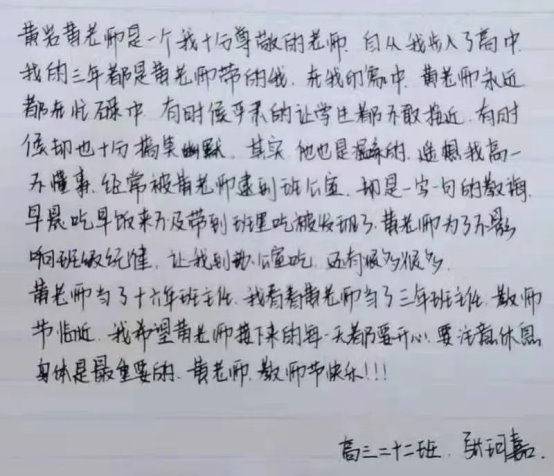 黄岩黄老师是一个我十分尊敬的老师, 自从我步入了高中
我的三年都是黄老师带的我. 在我印象中, 黄老师永远
都在忙碌中, 有时候严肃的让学生都不敢接近, 有时
候却也十分搞笑幽默. 其实, 他也是温柔的, 遥想我高一
不懂事, 经常被黄老师逮到班公室, 却是一字一句的教诲,
早晨吃早饭来不及带到班里吃被发现了, 黄老师为了不影
响班级纪律, 让我到办公室吃, 还有很多很多.
黄老师当了十六年班主任, 我看着黄老师当了三年班主任, 教师
节临近, 我希望黄老师接下来的每一天都要开心, 要注意休息
身体是最重要的, 黄老师, 教师节快乐!!!
高三二十二班, 张珂嘉.